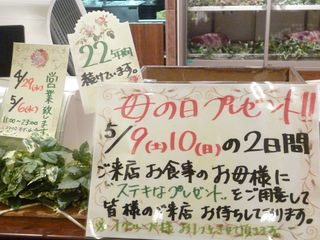 4/29(水)
5/6(水)
営業致します
11:00~23:00
22年間
続けています。
母の日プレゼント!!
5/9(土)10(日)の2日間
ご来店 お食事のお母様に
ステキなプレゼント を ご用意して
皆様のご来店 お待ちしております。